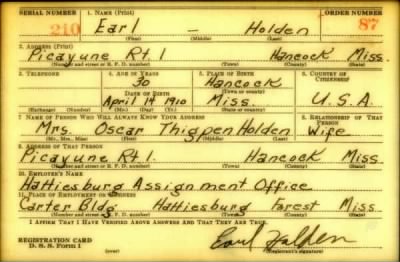 SERIAL NUMBER 1. NAME (Print) ORDER NUMBER
210 Earl — Holden 87
(First) (Middle) (Last)
2. ADDRESS (Print)
Picayune Rt 1 Hancock Miss.
(Number and street or R. F. D. number) (Town) (County) (State)
3. TELEPHONE 4. AGE IN YEARS 5. PLACE OF BIRTH 6. COUNTRY OF CITIZENSHIP
30 Hancock
DATE OF BIRTH (Town or county)
April 14 1910 Miss. U.S.A.
(Exchange) (Number) (Mo.) (Day) (Yr.) (State or country)
7. NAME OF PERSON WHO WILL ALWAYS KNOW YOUR ADDRESS 8. RELATIONSHIP OF THAT PERSON
Mrs. Oscar Thigpen Holden Wife
(Mr., Mrs., Miss) (First) (Middle) (Last)
9. ADDRESS OF THAT PERSON
Picayune Rt 1 Hancock Miss
(Number and street or R. F. D. number) (Town) (County) (State)
10. EMPLOYER'S NAME
Hattiesburg Assignment Office
11. PLACE OF EMPLOYMENT OR BUSINESS
Carter Bldg. Hattiesburg Forest Miss
(Number and street or R. F. D. number) (Town) (County) (State)
I AFFIRM THAT I HAVE VERIFIED ABOVE ANSWERS AND THAT THEY ARE TRUE.
REGISTRATION CARD
D. S. S. Form 1 Earl Holden
(Registrant's signature)